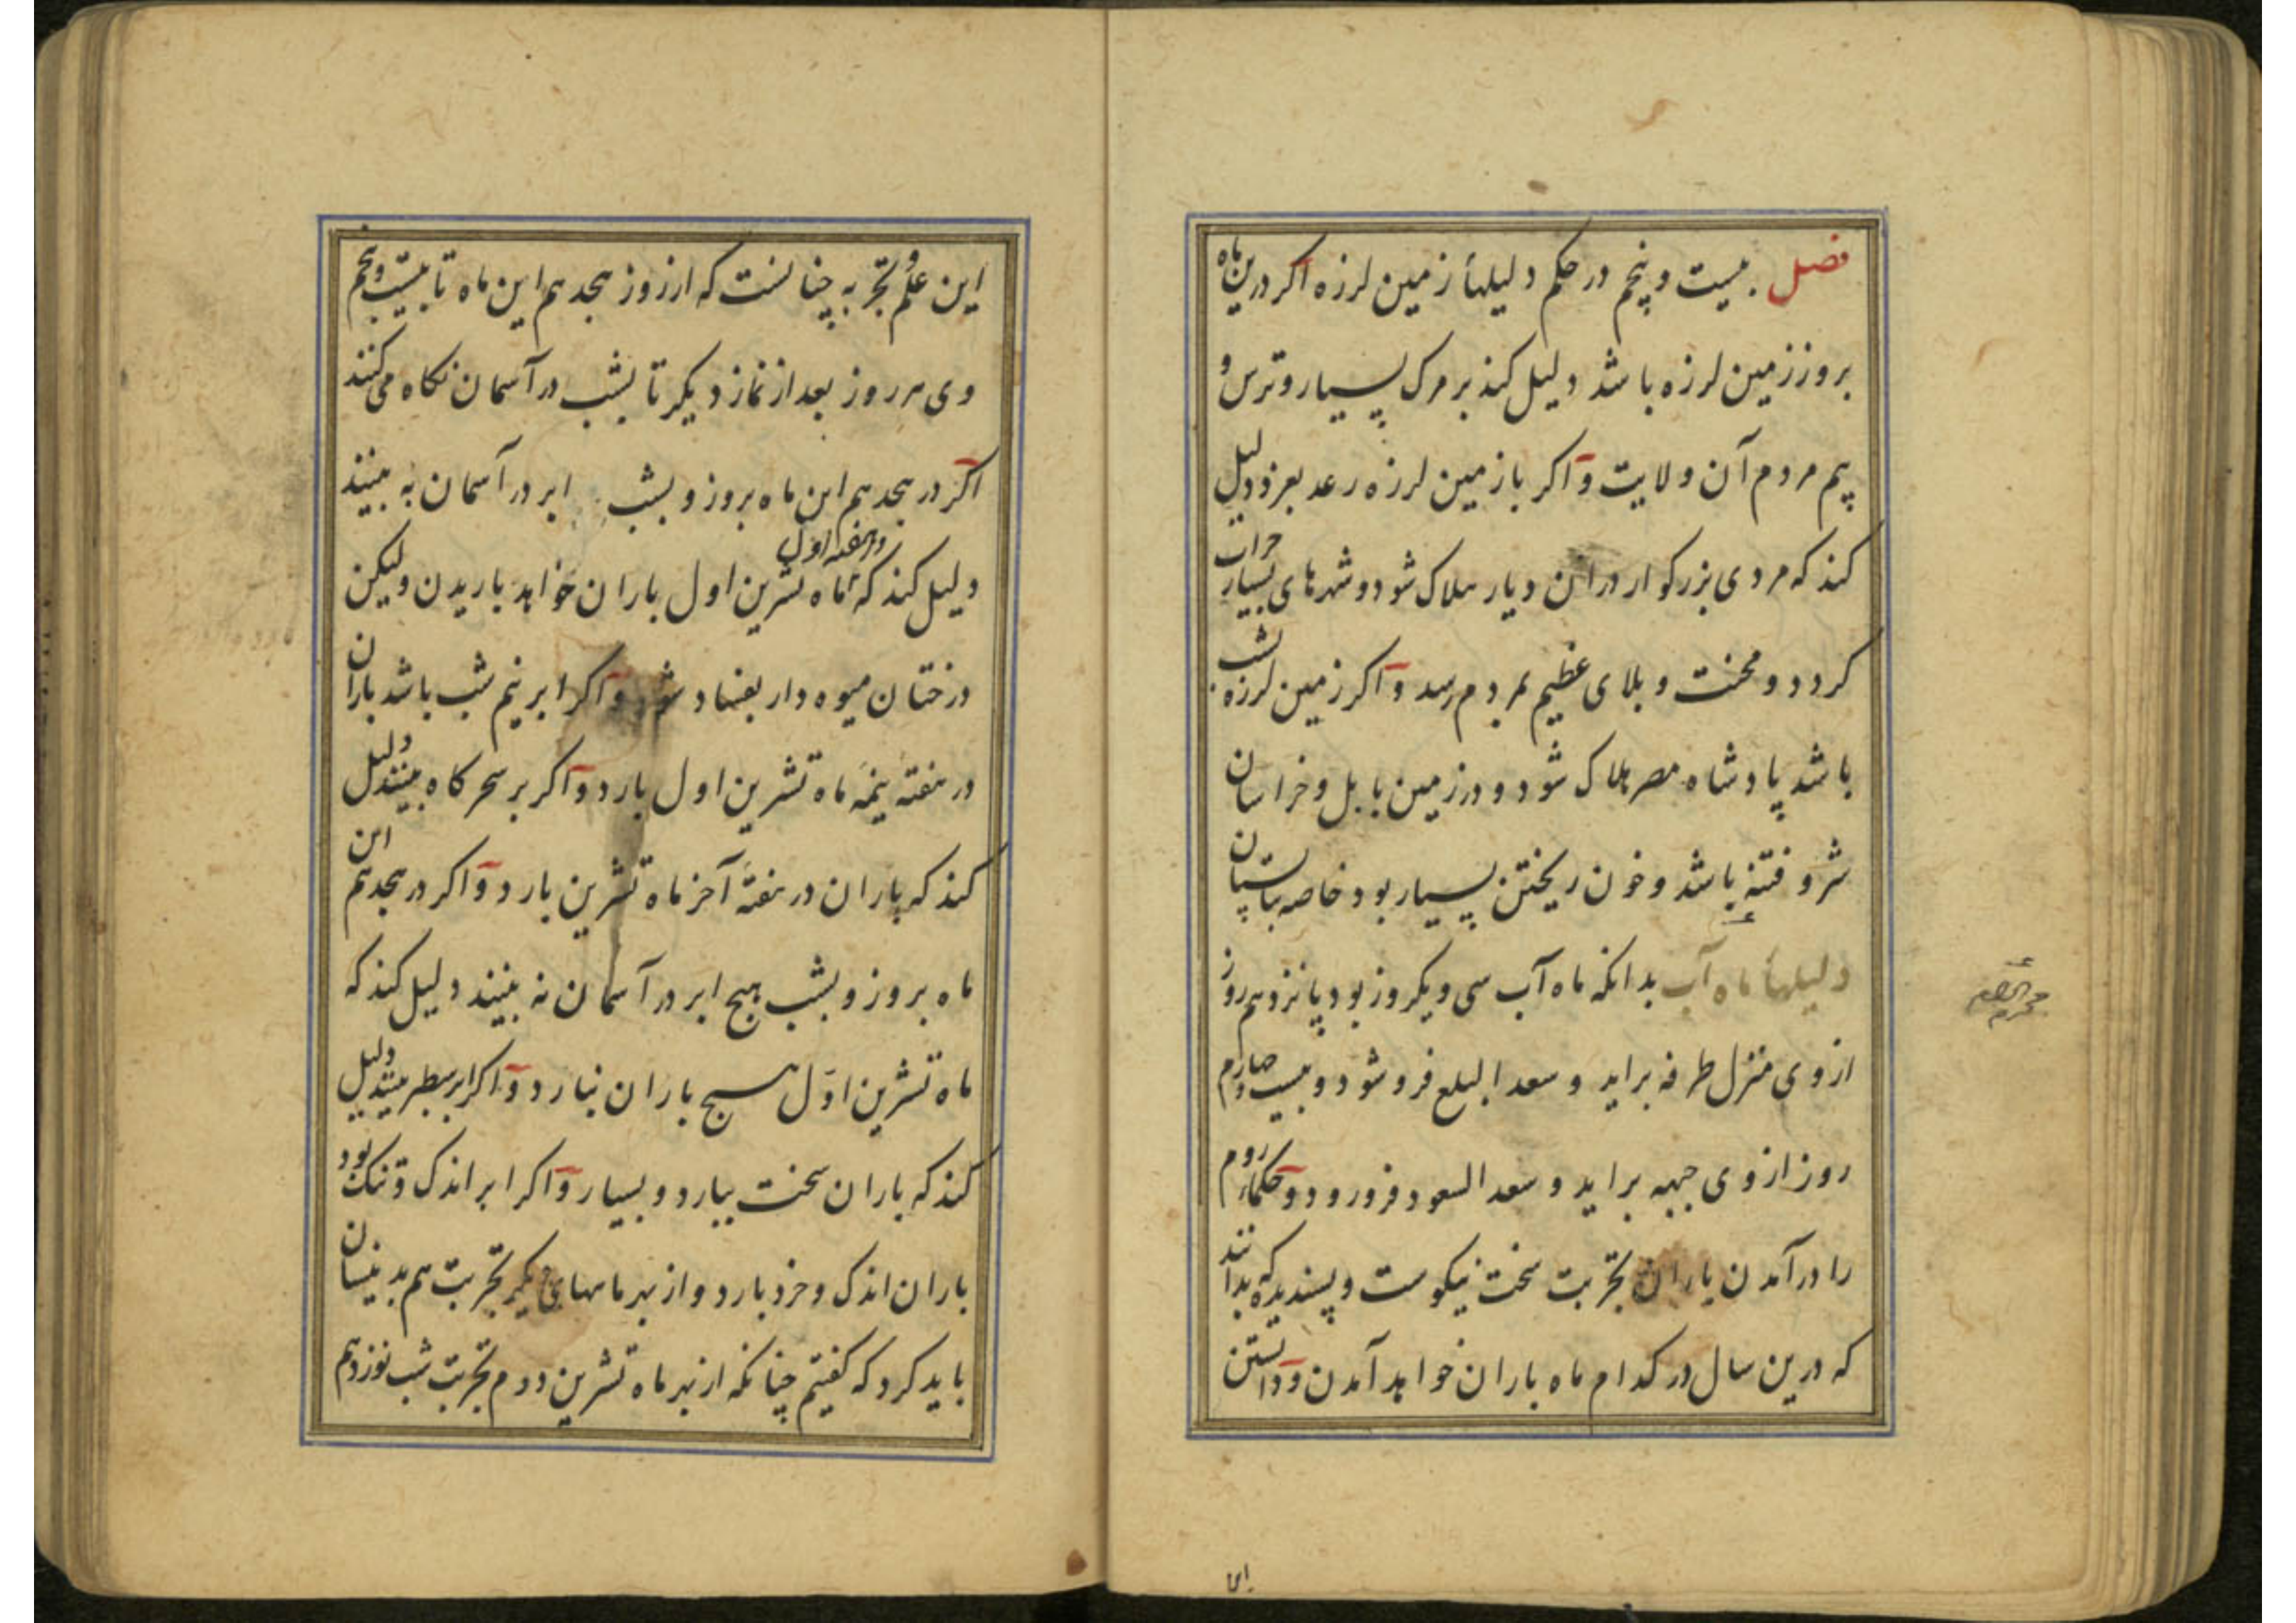 فصل بیست و پنجم در حکم دلیلهاء زمین لرزه اکر درین ماه
بروز زمین لرزه باشد دلیل کند بر مرک بسیار و ترس و
بیم مردم آن ولایت و اکر با زمین لرزه رعد بغرد دلیل
کند که مردی بزرکوار در ان دیار هلاک شود و شهرهای بسیار خراب
کردد و محنت و بلای عظیم بمردم رسد و اکر زمین لرزه بشب
باشد پادشاه مصر هلاک شود و در زمین بابل و خراسان
شر و فتنه باشد و خون ریختن بسیار بود خاصه
دلیلهاء ماه آب بدانکه ماه آب سی و یکروز بود پانزدهم روز
از وی منزل طرفه براید و سعد البلع فرو شود و بیست و چهارم
روز از وی جبهه براید و سعد السعود فرو رود و حکماء روم
را در آمدن باران تجربت سخت نیکوست و پسندیده که بدانند
که درین سال در کدام ماه باران خواهد آمدن و دانستن
این علم و تجربه چنانست که از روز هجدهم این ماه تا بیست و پنجم
وی هر روز بعد از نماز دیکر تا بشب در آسمان نکاه می کنند
اکر در هجدهم این ماه بروز و بشب ابر در آسمان به بینند
دلیل کند که در هفته اول ماه تشرین اول باران خواهد باریدن ولیکن
درختان میوه دار بفساد شود و اکر ابر نیم شب باشد باران
در هفته نیمه ماه تشرین اول بارد و اکر بر سحرکاه بینند دلیل
کند که باران در هفته آخر ماه تشرین بارد و اکر در هجدهم این
ماه بروز و بشب هیچ ابر در آسمان نه بینند دلیل کند که
ماه تشرین اول هیچ باران نبارد و اکر ابر سطبر بینند دلیل
کند که باران سخت ببارد و بسیار و اکر ابر اندک و تنک بود
باران اندک و خرد بارد و از بهر ماههای دیکر تجربت هم بدینسان
باید کرد که کفتیم چنانکه از بهر ماه تشرین دوم تجربت شب نوزدهم